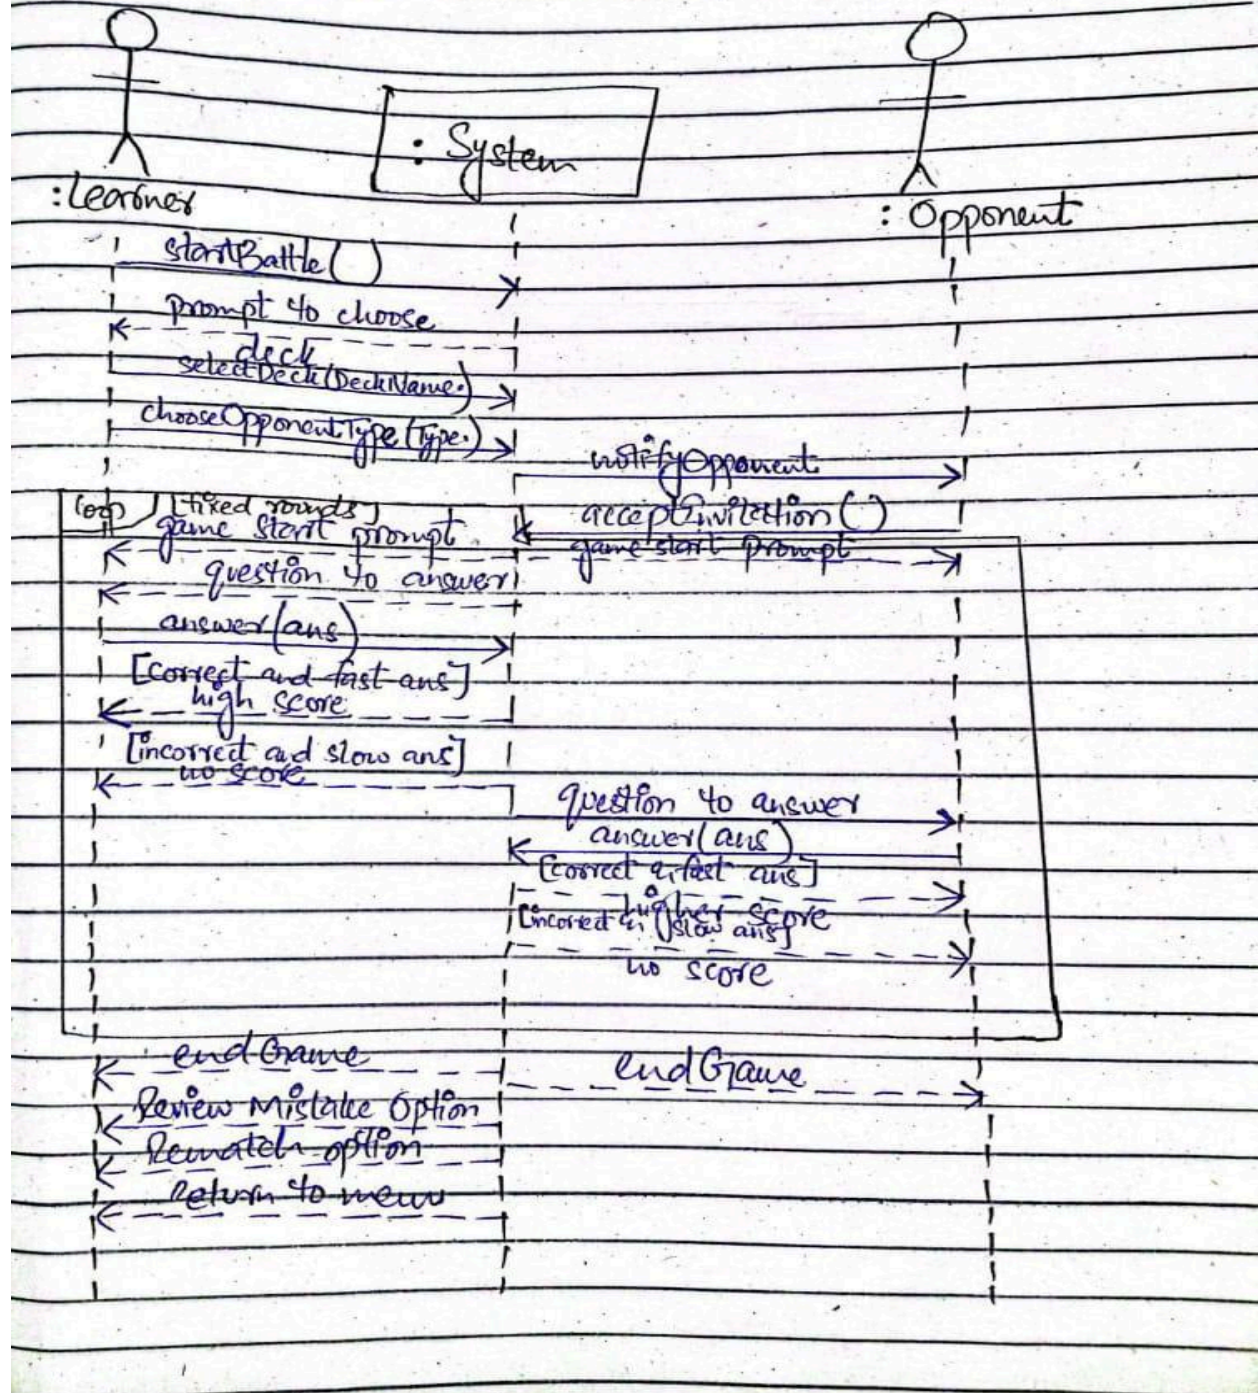 : System
:Learner
: Opponent
startBattle( )
prompt to choose
deck
selectDeck(DeckName.)
chooseOpponentType(Type.)
notifyOpponent
loop [fixed rounds]
acceptInvitation( )
game start prompt
game start prompt
question to answer
answer(ans)
[correct and fast ans]
high score
[incorrect and slow ans]
no score
question to answer
answer(ans)
[correct & fast ans]
higher score
[incorrect & slow ans]
no score
endGame
endGame
Review Mistake Option
Rematch option
Return to menu